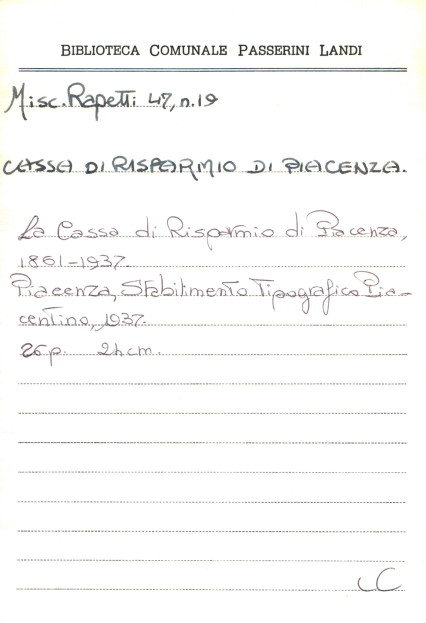 BIBLIOTECA COMUNALE PASSERINI LANDI
Misc. Rapetti 47, n. 19
CASSA DI RISPARMIO DI PIACENZA.
La Cassa di Risparmio di Piacenza,
1861-1937.
Piacenza, Stabilimento Tipografico Pia-
centino, 1937.
26 p. 24 cm.